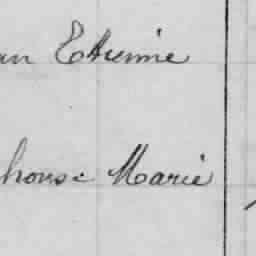 an Etienne
honse Marie